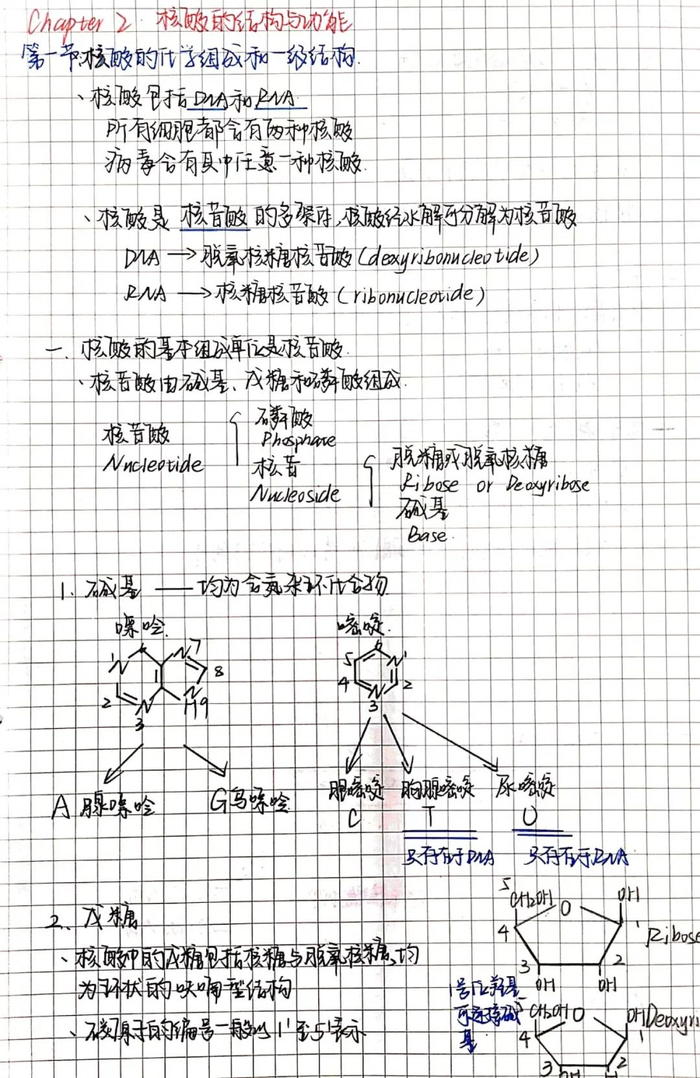 Chapter 2 核酸的结构与功能
第一节 核酸的化学组成和一级结构
、核酸包括DNA和RNA
所有细胞都含有两种核酸
病毒含有其中任意一种核酸
、核酸是 核苷酸 的多聚体,核酸经水解可分解为核苷酸
DNA → 脱氧核糖核苷酸 (deoxyribonucleotide)
RNA → 核糖核苷酸 (ribonucleotide)
一、核酸的基本组成单位是核苷酸
·核苷酸由碱基、戊糖和磷酸组成
核苷酸
Nucleotide
磷酸
Phosphate
核苷
Nucleoside
脱糖或脱氧核糖
Ribose or Deoxyribose
碱基
Base
1. 碱基 —— 均为含氮杂环化合物
嘌呤
1 N 6 N 7
8
2 N N
3 H 9
嘧啶
5 6 N 1
4 N 2
3
A 腺嘌呤
G鸟嘌呤
胞嘧啶
C
胸腺嘧啶
T
只存在于DNA
尿嘧啶
U
只存在于RNA
2、戊糖
、核酸中的戊糖包括核糖与脱氧核糖,均
为环状的呋喃型结构
、碳原子的编号一般以1'至5'表示
5
CH2OH O OH
4 1'
3 2
OH OH
Ribose
号位羟基
可连接碱
基
5
CH2OH O OH
4 1
3 2
OH H
Deoxyri